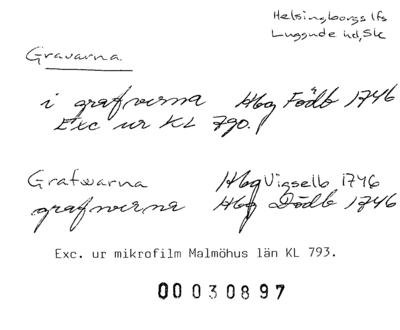 Helsingborgs lfs
Luggude hd, Sk
Gravarna
i grafverna Hbg Födb 1746
Exc ur KL 790.
Grafwarna Hbg Vigselb 1746
grafwerna Hbg Dödb 1746
Exc. ur mikrofilm Malmöhus län KL 793.
00030897